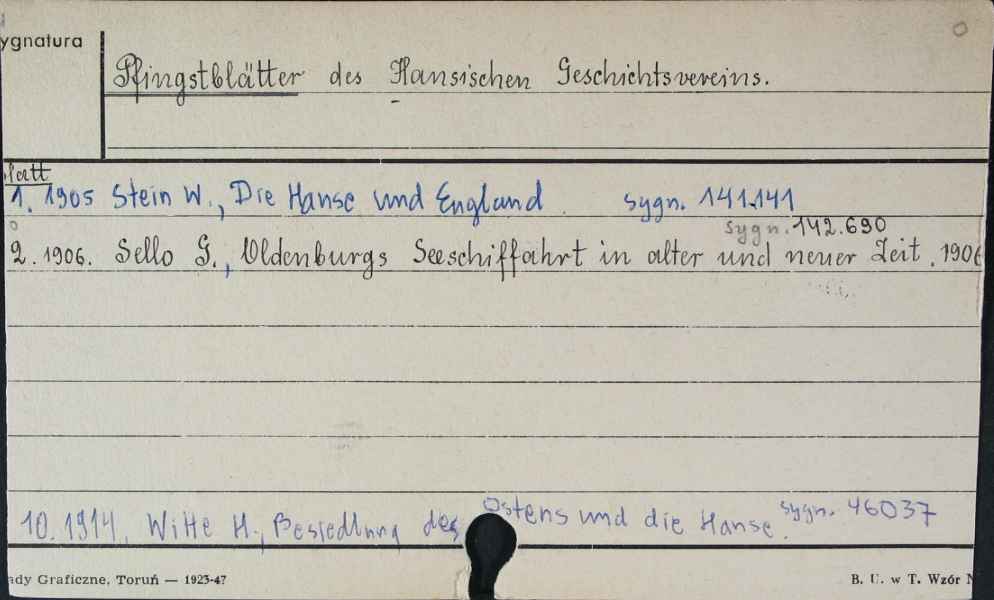 ygnatura
Pfingstblätter des Hansischen Geschichtsvereins.
latt
1. 1905 Stein W., Die Hanse und England. sygn. 141.141
sygn. 142.690
2. 1906. Sello G., Oldenburgs Seeschiffahrt in alter und neuer Zeit. 1906
10. 1914. Witte H., Besiedlung des Ostens und die Hanse. sygn. 46037
ady Graficzne, Toruń — 1923-47
B. U. w T. Wzór N